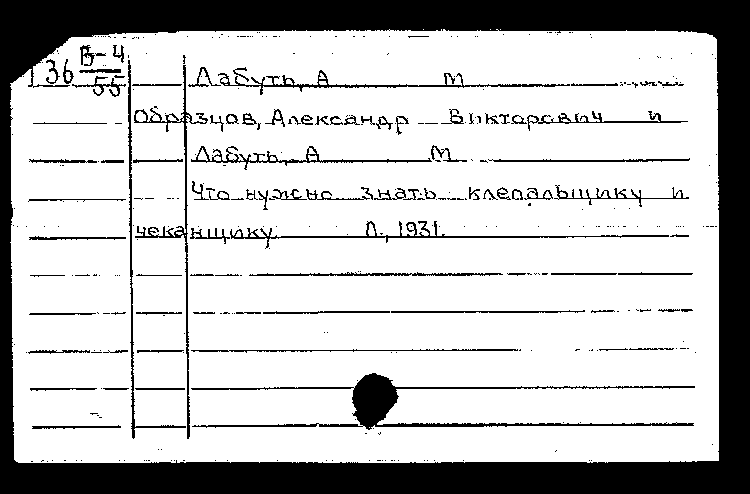 В-4
136 55
Лабуть, А М
Образцов, Александр Викторович и
Лабуть, А М
Что нужно знать клепальщику и
чеканщику. Л., 1931.